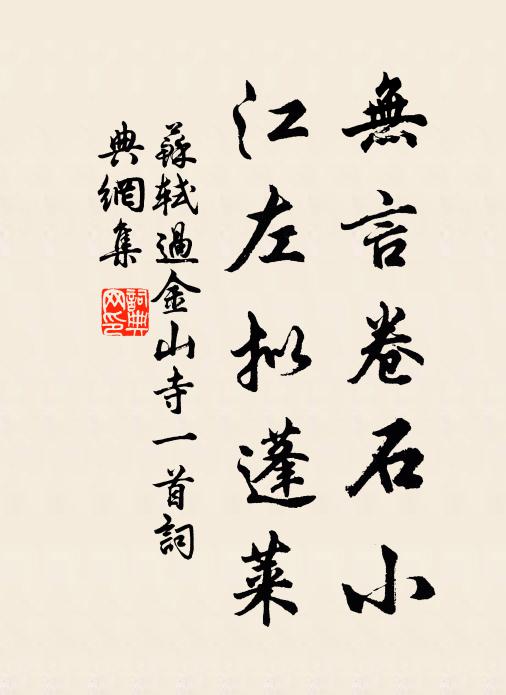 無言卷石小
江左拟蓬萊
蘇軾過金山寺一首詞
典網集
詞典网印